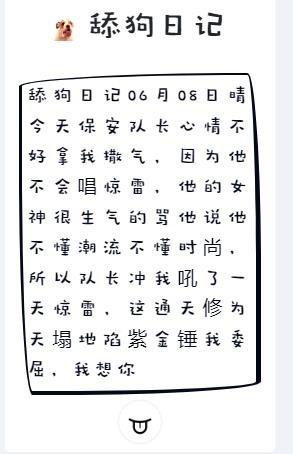 舔狗日记
舔狗日记06月08日晴
今天保安队长心情不
好拿我撒气，因为他
不会唱惊雷，他的女
神很生气的骂他说他
不懂潮流不懂时尚，
所以队长冲我吼了一
天惊雷，这通天修为
天塌地陷紫金锤我委
屈，我想你